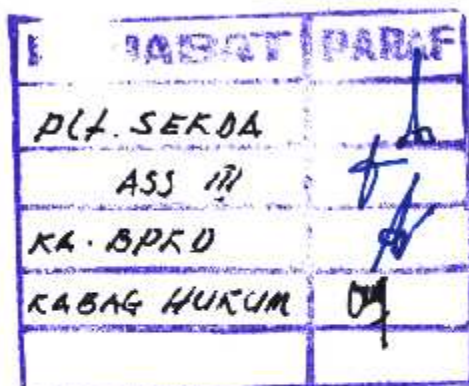 JABAT PARAF
Plt. SEKDA
ASS III
KA. BPKD
KABAG HUKUM